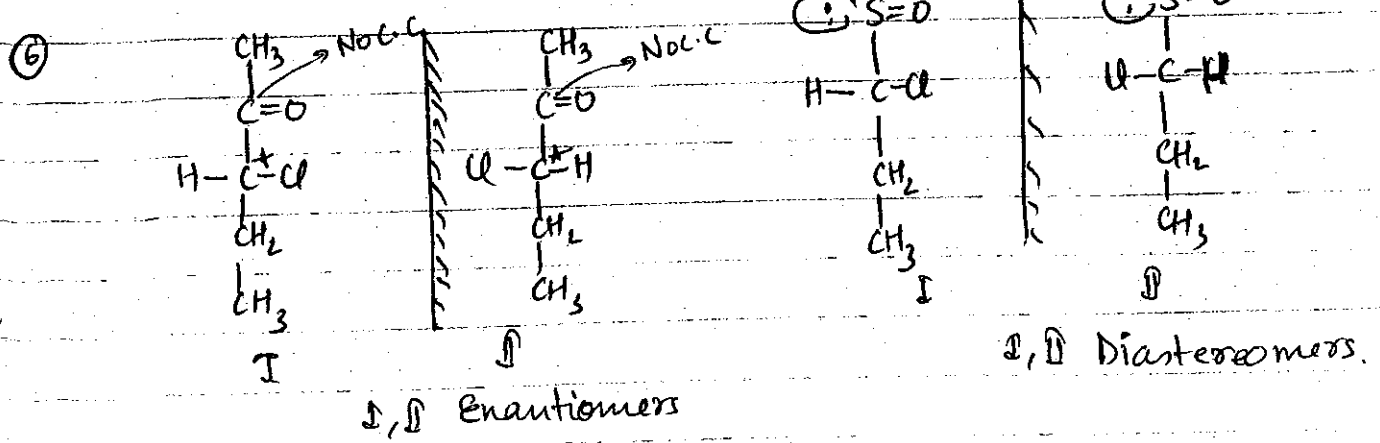 ⑥
CH₃ → NoC.C
C=O
H-C*-Cl
CH₂
CH₃
I
CH₃ → NoC.C
C=O
Cl-C*-H
CH₂
CH₃
II
I, II Enantiomers
: S=O
H-C-Cl
CH₂
CH₃
I
:
Cl-C-H
CH₂
CH₃
II
I, II Diastereomers.